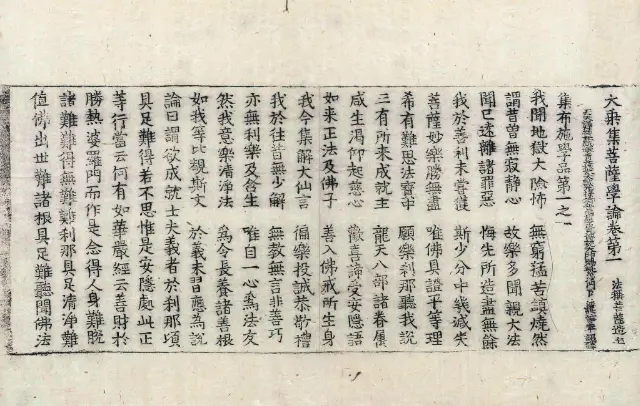 大乗集菩薩學論卷第一 法稱菩薩造 杜
集布施學品第一之一
我聞地獄大險怖 無窮猛苦鎮燒然
謂昔曽無寂静心 故樂多聞親大法
聞已遠離諸罪惡 悔先所造盡無餘
我於善利未嘗獲 斯少分中纔減失
菩薩妙樂勝無盡 唯佛具證平等理
希有難思法寶中 願樂刹那聽我說
三有所来成就主 龍天八部諸眷屬
咸生渴仰起慈心 歡喜諦受安隱語
如来正法及佛子 善入佛戒所生身
我今集解大仙言 徧樂投誠恭敬禮
我於往昔無少解 無教無言非善巧
亦無利樂及含生 唯自一心為法友
然我意樂清淨法 為令長養諸善根
如我等比覩斯文 於義未習應為說
論曰謂欲成就士夫義者於刹那頃
具足難得若不思惟是安隱處此正
等行當云何有如華嚴經云善財於
勝熱婆羅門而作是念得人身難脫
諸難難得無難難刹那具足清淨難
值佛出世難諸根具足難聽聞佛法